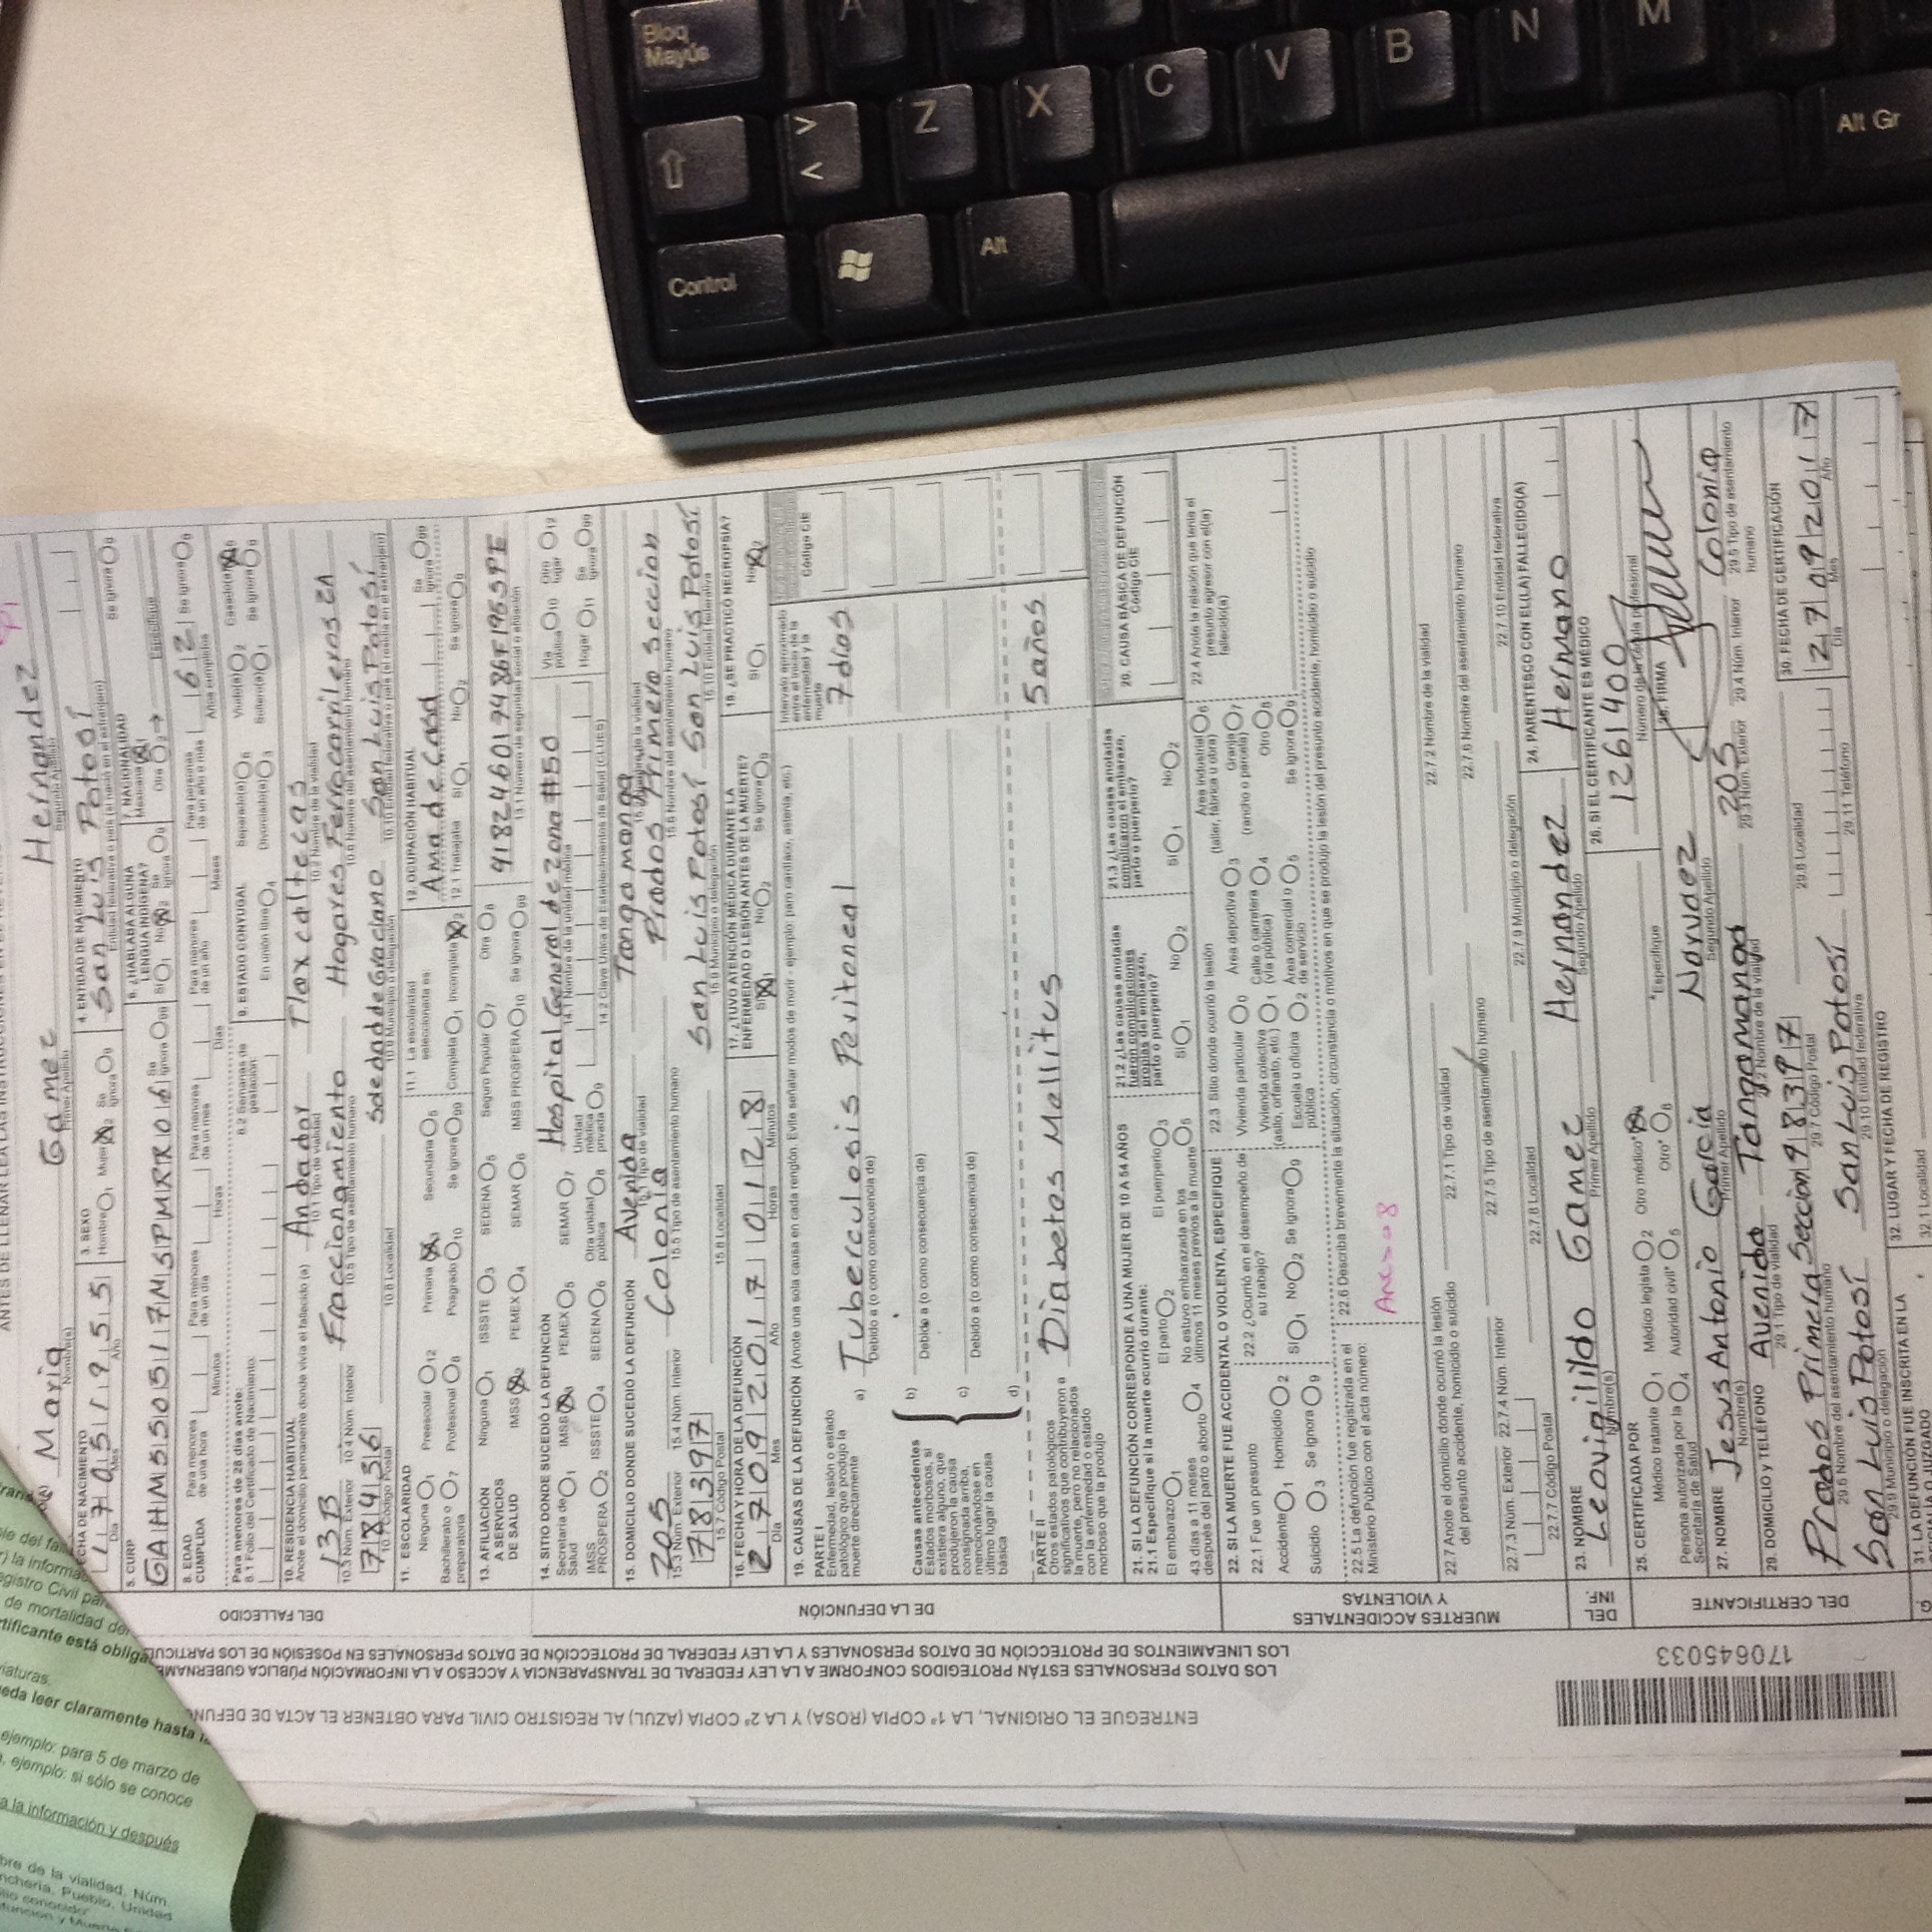 ANTES DE LLENAR LEA LAS INSTRUCCIONES EN
Maria Gamez Hernandez
Nombre(s) Primer Apellido Segundo Apellido
FECHA DE NACIMIENTO 17 05 1955
Día Mes Año
3. SEXO Hombre 1 Mujer 2 Se ignora 9
4. ENTIDAD DE NACIMIENTO San Luis Potosí Se ignora 9
Entidad federativa o país (si nació en el extranjero)
5. CURP GAHM550517MSPMRR06 Se ignora 99
6. ¿HABLABA ALGUNA LENGUA INDÍGENA? Sí 1 No 2 Se ignora 9
7. NACIONALIDAD Mexicana 1 Otra 2 → Especifique
8. EDAD CUMPLIDA Para menores de una hora Minutos Para menores de un día Horas Para menores de un mes Días Para menores de un año Meses Para personas de un año o más 62 Años cumplidos Se ignora 9
Para menores de 28 días anote:
8.1 Folio del Certificado de Nacimiento
8.2 Semanas de gestación:
9. ESTADO CONYUGAL En unión libre 4 Separado(a) 6 Divorciado(a) 3 Viudo(a) 2 Soltero(a) 1 Casado(a) 5 Se ignora 9
10. RESIDENCIA HABITUAL
Anote el domicilio permanente donde vivía el fallecido (a) Andador Tlaxcaltecas
10.1 Tipo de vialidad 10.2 Nombre de la vialidad
13B Fraccionamiento Hogares Ferrocarrileros 2A
10.3 Núm. Exterior 10.4 Núm. Interior 10.5 Tipo de asentamiento humano 10.6 Nombre del asentamiento humano
78436 Soledad de Graciano San Luis Potosí
10.7 Código Postal 10.8 Localidad 10.9 Municipio o delegación 10.10 Entidad federativa o país (si residía en el extranjero)
11. ESCOLARIDAD
Ninguna 1 Preescolar 12 Primaria Secundaria 5
Bachillerato o preparatoria 7 Profesional 8 Posgrado 10 Se ignora 99
11.1 La escolaridad seleccionada es: Completa 1 Incompleta 2
12. OCUPACIÓN HABITUAL Ama de Casa Se ignora 99
12.1 Trabajaba Sí 1 No 2 Se ignora 9
13. AFILIACIÓN A SERVICIOS DE SALUD
Ninguna 1 ISSSTE 3 SEDENA 5 Seguro Popular 7 Otra 8
IMSS PEMEX 4 SEMAR 6 IMSS PROSPERA 10 Se ignora 99
13.1 Número de seguridad social o afiliación
14. SITIO DONDE SUCEDIÓ LA DEFUNCIÓN
Secretaría de Salud 1 IMSS PEMEX 5 SEMAR 7 Unidad médica privada 9
IMSS PROSPERA 2 ISSSTE 4 SEDENA 6 Otra unidad pública 8
Hospital General de zona #50
14.1 Nombre de la unidad médica
14.2 Clave Única de Establecimientos de Salud (CLUES)
Vía pública 10 Otro lugar 12
Hogar 11 Se ignora 99
15. DOMICILIO DONDE SUCEDIÓ LA DEFUNCIÓN Avenida Tangamanga
15.1 Tipo de vialidad
205 Colonia Prados Primera Seccion
15.3 Núm. Exterior 15.4 Núm. Interior 15.5 Tipo de asentamiento humano 15.6 Nombre del asentamiento humano
78397 San Luis Potosí San Luis Potosí
15.7 Código Postal 15.8 Localidad 15.9 Municipio o delegación 15.10 Entidad federativa
16. FECHA Y HORA DE LA DEFUNCIÓN
27 09 2017 01 28
Día Mes Año Horas Minutos
17. ¿TUVO ATENCIÓN MÉDICA DURANTE LA ENFERMEDAD O LESIÓN ANTES DE LA MUERTE?
Sí 1 No 2 Se ignora 9
18. ¿SE PRACTICÓ NECROPSIA?
Sí 1 No 2
19. CAUSAS DE LA DEFUNCIÓN (Anote una sola causa en cada renglón. Evite señalar modos de morir - ejemplo: paro cardiaco, astenia, etc.)
PARTE I
Enfermedad, lesión o estado patológico que produjo la muerte directamente
Intervalo aproximado entre el inicio de la enfermedad y la muerte
Código CIE
a) Tuberculosis Peritoneal 7 dias
Debido a (o como consecuencia de)
Causas antecedentes
Estados morbosos, si existiera alguno, que produjeron la causa consignada arriba, mencionándose en último lugar la causa básica
b)
Debido a (o como consecuencia de)
c)
Debido a (o como consecuencia de)
d)
PARTE II
Otros estados patológicos significativos que contribuyeron a la muerte, pero no relacionados con la enfermedad o estado morboso que la produjo
Diabetes Mellitus 5 años
20. CAUSA BÁSICA DE DEFUNCIÓN
Código CIE
21. SI LA DEFUNCIÓN CORRESPONDE A UNA MUJER DE 10 A 54 AÑOS
21.1 Especifique si la muerte ocurrió durante:
El embarazo 1 El parto 2 El puerperio 3
43 días a 11 meses después del parto o aborto 4 No estuvo embarazada en los últimos 11 meses previos a la muerte 5
21.2 ¿Las causas anotadas fueron complicaciones propias del embarazo, parto o puerperio?
Sí 1 No 2
21.3 ¿Las causas anotadas complicaron el embarazo, parto o puerperio?
Sí 1 No 2
22. SI LA MUERTE FUE ACCIDENTAL O VIOLENTA, ESPECIFIQUE
22.1 Fue un presunto
Accidente 1 Homicidio 2
Suicidio 3 Se ignora 9
22.2 ¿Ocurrió en el desempeño de su trabajo?
Sí 1 No 2 Se ignora 9
22.3 Sitio donde ocurrió la lesión
Vivienda particular 0 Área deportiva 3 Área industrial (taller, fábrica u obra) 6
Vivienda colectiva (asilo, orfanato, etc.) 1 Calle o carretera (vía pública) 4 Granja (rancho o parcela) 7
Escuela u oficina pública 2 Área comercial o de servicio 5 Otro 8
Se ignora 9
22.4 Anote la relación que tenía el presunto agresor con el(la) fallecido(a)
22.5 La defunción fue registrada en el Ministerio Público con el acta número:
22.6 Describa brevemente la situación, circunstancia o motivos en que se produjo la lesión del presunto accidente, homicidio o suicidio
22.7 Anote el domicilio donde ocurrió la lesión del presunto accidente, homicidio o suicidio
22.7.1 Tipo de vialidad 22.7.2 Nombre de la vialidad
22.7.3 Núm. Exterior 22.7.4 Núm. Interior 22.7.5 Tipo de asentamiento humano 22.7.6 Nombre del asentamiento humano
22.7.7 Código Postal 22.7.8 Localidad 22.7.9 Municipio o delegación 22.7.10 Entidad federativa
23. NOMBRE Leovigildo Gamez Hernandez
Nombre(s) Primer Apellido Segundo Apellido
24. PARENTESCO CON EL(LA) FALLECIDO(A) Hermano
25. CERTIFICADA POR
Médico tratante 1 Médico legista 2 Otro médico*
Persona autorizada por la Secretaría de Salud 4 Autoridad civil* 5 Otro* 8
*Especifique
26. SI EL CERTIFICANTE ES MÉDICO
1261400
Número de la cédula profesional
27. NOMBRE Jesus Antonio Garcia Narvaez
Nombre(s) Primer Apellido Segundo Apellido
28. FIRMA
29. DOMICILIO y TELÉFONO Avenida Tangamanga 205 Colonia
29.1 Tipo de vialidad 29.2 Nombre de la vialidad 29.3 Núm. Exterior 29.4 Núm. Interior 29.5 Tipo de asentamiento humano
Prados Primera Seccion
29.6 Nombre del asentamiento humano 29.7 Código Postal 29.8 Localidad
San Luis Potosí San Luis Potosí
29.9 Municipio o delegación 29.10 Entidad federativa 29.11 Teléfono
30. FECHA DE CERTIFICACIÓN
27 09 2017
Día Mes Año
31. LA DEFUNCIÓN FUE INSCRITA EN LA
32. LUGAR Y FECHA DE REGISTRO
32.1 Localidad
DEL FALLECIDO
DE LA DEFUNCIÓN
MUERTES ACCIDENTALES Y VIOLENTAS
DEL INF.
DEL CERTIFICANTE
LOS DATOS PERSONALES ESTÁN PROTEGIDOS CONFORME A LA LEY FEDERAL DE TRANSPARENCIA Y ACCESO A LA INFORMACIÓN PÚBLICA
LOS LINEAMIENTOS DE PROTECCIÓN DE DATOS PERSONALES Y LA LEY FEDERAL DE PROTECCIÓN DE DATOS PERSONALES EN POSESIÓN DE LOS
ENTREGUE EL ORIGINAL, LA 1ª COPIA (ROSA) Y LA 2ª COPIA (AZUL) AL REGISTRO CIVIL PARA OBTENER EL ACTA DE
170645033
la información y después
ejemplo: para 5 de marzo de
ejemplo: si sólo se conoce
bre de la vialidad, Núm.
Pueblo, Unidad
Bloq Mayús
A
> <
Z X C V B N M
Control
Alt
Alt Gr